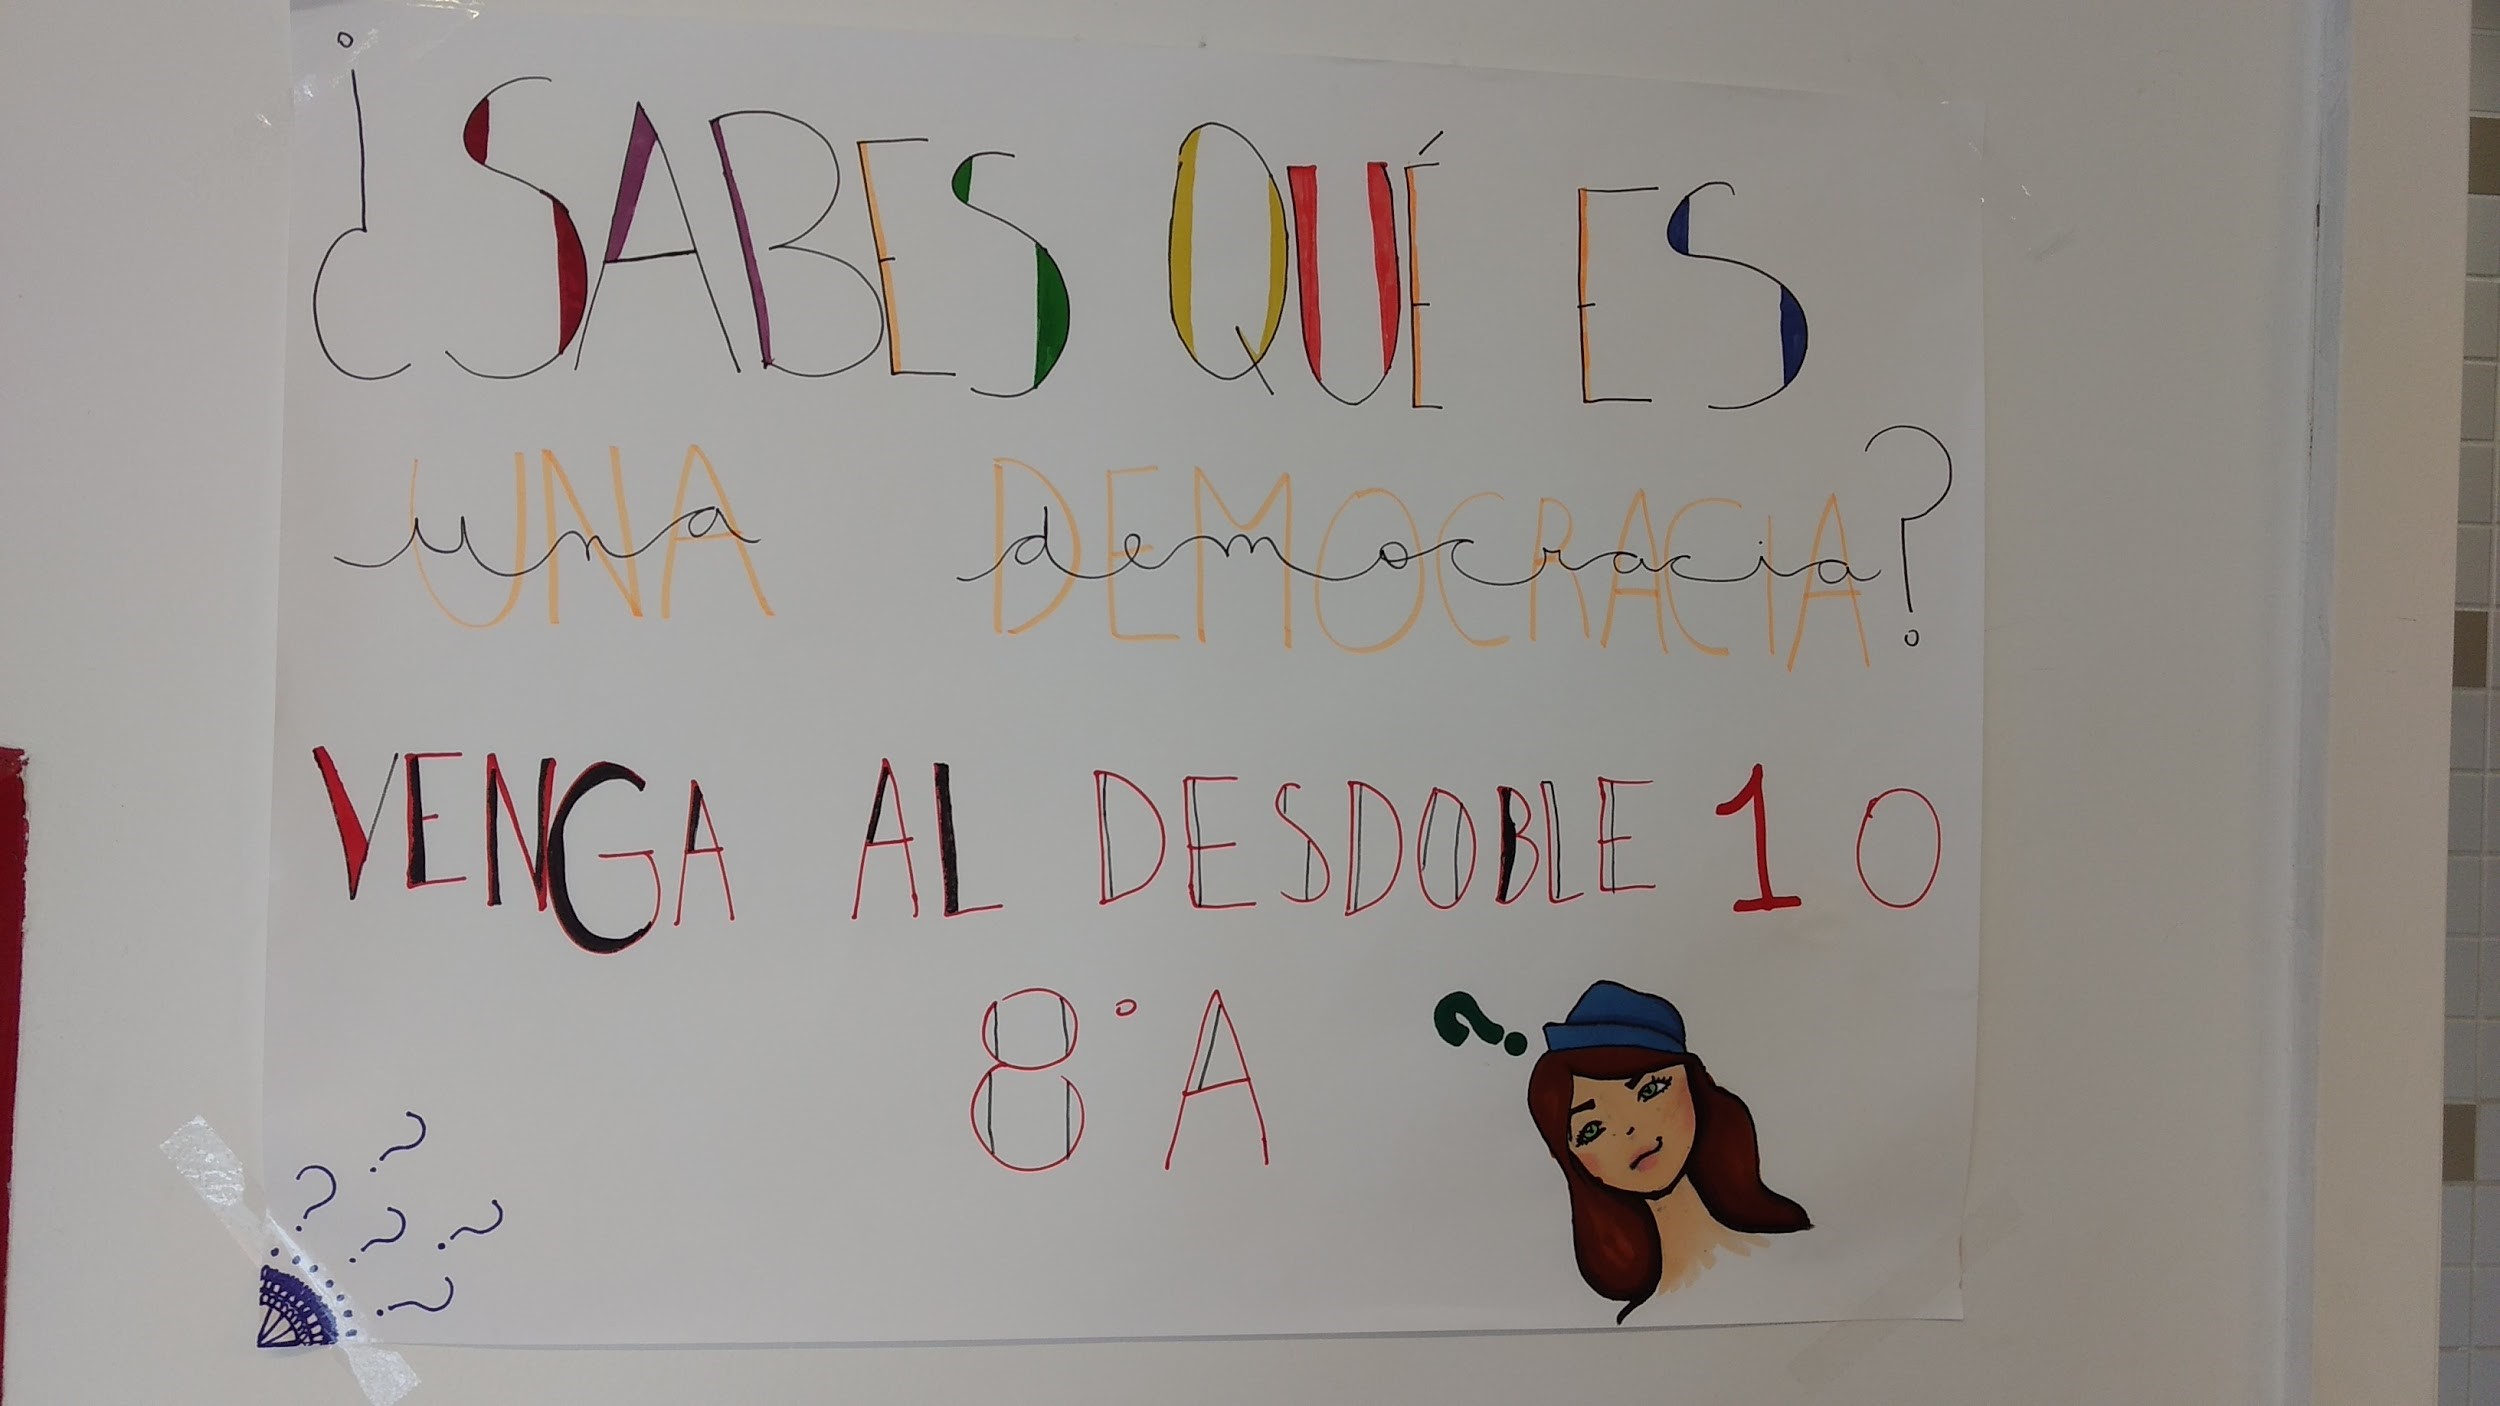 ¿SABES QUÉ ES
UNA DEMOCRACIA?
una democracia
VENGA AL DESDOBLE 10
8°A
?
? ? ? ? ?